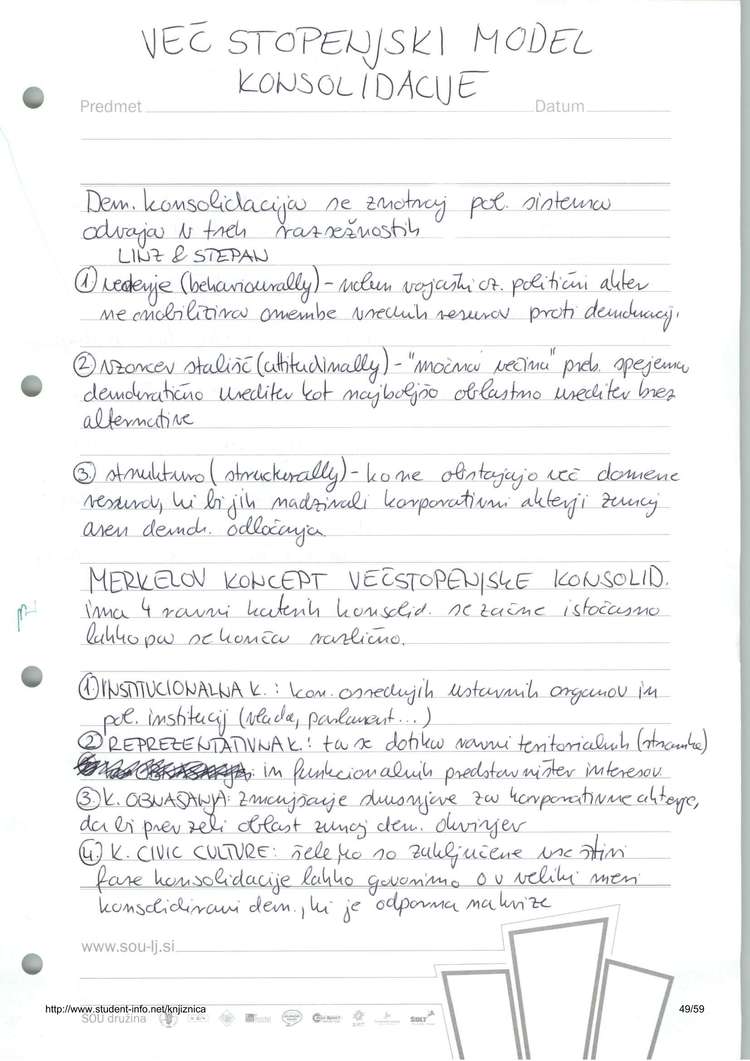 VEČ STOPENJSKI MODEL
KONSOLIDACIJE
Predmet
Datum
Dem. konsolidacija se znotraj pol. sistema
odvaja v treh razsežnostih
LINZ & STEPAN
① vedenje (behaviourally) - noben vojaški oz. politični akter
ne mobilizira omembe vrednih resursov proti demokraciji.
② vzorcev stališč (attitudinally) - "močna večina" preb. spejema
demokratično ureditev kot najboljšo oblastno ureditev brez
alternative
③ strukturo (structurally) - ko ne obstajajo več domene
resursov, ki bi jih nadzirali korporativni akterji zunaj
demokr. odločanja
MERKELOV KONCEPT VEČSTOPENJSKE KONSOLID.
ima 4 ravni katerih konsolid. se začne istočasno
lahko pa se konča različno.
① INSTITUCIONALNA K.: kon. osrednjih ustavnih organov in
pol. institucij (vlada, parlament...)
② REPREZENTATIVNA K.: ta se dotika ravni teritorialnih (stranke)
in funkcionalnih predstavništev interesov
③ K. OBNAŠANJA: zmanjšanje skušnjave za korporativne akterje,
da bi prevzeli oblast zunaj dem. okvirjev
④ K. CIVIC CULTURE: šele ko so zaključene vse štiri
faze konsolidacije lahko govorimo o v veliki meri
konsolidirani dem., ki je odporna na krize
www.sou-lj.si
http://www.student-info.net/knjiznica
49/59
SOU družina